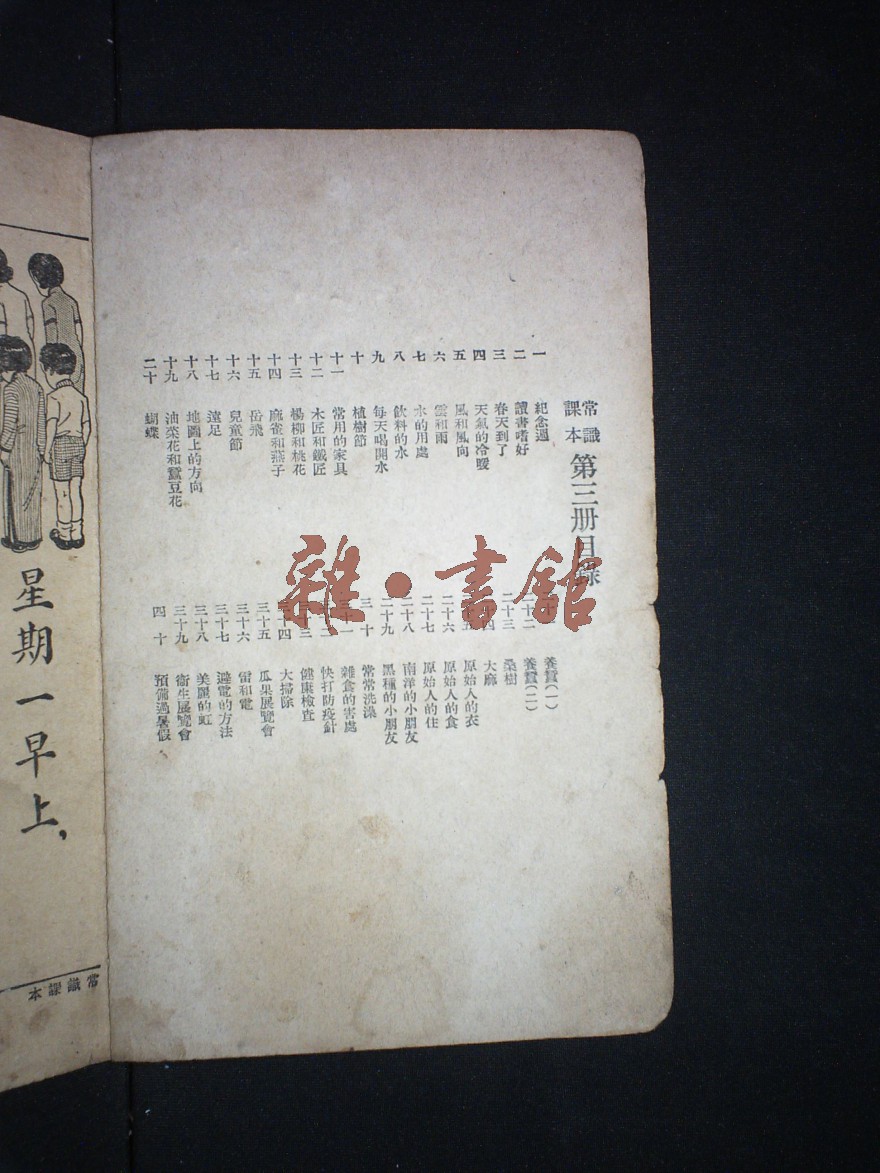 常識課本 第三册目錄
一 紀念週
二 讀書嗜好
三 春天到了
四 天氣的冷暖
五 風和風向
六 雲和雨
七 水的用處
八 飲料的水
九 每天喝開水
十 植樹節
十一 常用的家具
十二 木匠和鐵匠
十三 楊柳和桃花
十四 麻雀和燕子
十五 岳飛
十六 兒童節
十七 遠足
十八 地圖上的方向
十九 油菜花和蠶豆花
二十 蝴蝶
養蠶(一)
十二 養蠶(二)
二十三 桑樹
十四 大麻
原始人的衣
二十六 原始人的食
二十七 原始人的住
二十八 南洋的小朋友
二十九 黑種的小朋友
三十 常常洗澡
雜食的害處
快打防疫針
健康檢查
三十四 大掃除
三十五 瓜果展覽會
三十六 雷和電
三十七 避電的方法
三十八 美麗的虹
三十九 衞生展覽會
四十 預備過暑假
星期一早上，
常識課本
雜·書館